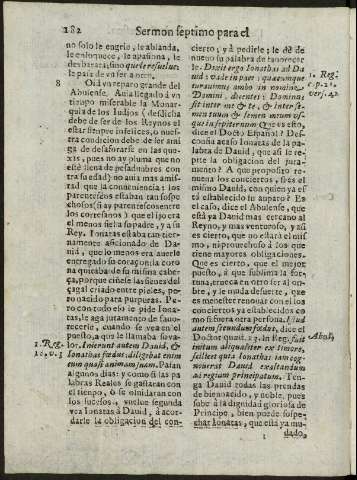 182 Sermon septimo para el
no solo le engrie, le ablanda,
le enloquece, le apassiona, le
desbarata; sino que le resuelue
8 Oid vn reparo grande del
Abulense. Auia llegado à vn
tiempo miserable la Monar-
quia de los Iudios (desdicha
debe de ser de los Reynos el
estàr siempre infelices, o nues-
tra condicion debe de ser ami
ga de desaforarse en las que-
xas, pues no ay pluma que no
estè llena de pesadumbres con
tra su edad) no auia mas amis-
tad que la conueniencia: los
parentescos estaban tan sospe
chosos (si ay parentescos entre
los cortesanos) que el ijo era
el menos fiel a su padre, y a su
Rey. Ionatas estaba tan tier-
namente aficionado de Da-
uid, que lo menos era auerle
entregado su coraçon; la coro
na quitaba de su misma cabe-
ça, porque ciñese las sienes del
çagal criado entre pieles, pe-
ro nacido para purpuras. Pe-
ro con todo elo le pide Iona-
tas, le aga juramento de fauo-
recerle, cuando se vea en el
puesto, a que le llamaba su va-
1. Reg. lor. Inierunt autem Dauid, &
18. v. 3 Ionathas fœdus: diligebat enim
eum quasi animam suam. Pasan
algunos dias: y como si las pa
labras Reales se gastaran con
el tiempo, ò se olvidaran con
los sucesos, vuelue segunda
vez Ionatas à Dauid, à acor-
darle la obligacion del con-
cierto; y à pedirle; le dè de
nueuo su palabra de fauorecer
le. Dixit ergo Ionathas ad Da
uid: vade in pace: quæcumque 1. Reg.
iurauimus ambo in nomine c. p. 20.
Domini, dicentes: Dominus ver. 42
sit inter me & te, & inter se-
men tuum & semen meum us-
que in sempiternum. Que es esto,
dice el Docto Español? Des-
confia acaso Ionatas de la pa
labra de Dauid, que asi le re-
pite la obligacion del jura-
mento? A que proposito re-
nueua los conciertos, si es el
mismo Dauid, con quien ya es
tà establecido su amparo? Es
el caso, dice el Abulense, que
està ya Dauid mas cercano al
Reyno, y mas venturoso, y asi
es cierto, que no estarà el mis
mo, ni prouechoso à los que
tiene mayores obligaciones.
Que es cierto, que el mejor
puesto, à que sublima la for-
tuna, trueca en otro ser al on-
bre, y le muda de suerte, que
es menester reualidar con el
los conciertos, y a establecidos co
mo si fuera otra persona. Fuit
autem secundum fœdus, dice el
Doctor quæst. 27. In Reg. fuit Abul.
initum aliqualiter ex timore,
scilicet quia Ionathas iam cog-
nouerat Dauid exaltandum
ad regium principatum. Ten-
ga Dauid todas las prendas
de bien nacido, y noble, pues
sube à la dignidad gloriosa de
Principe, bien puede sospe-
char Ionatas, que està ya mu-
dado,